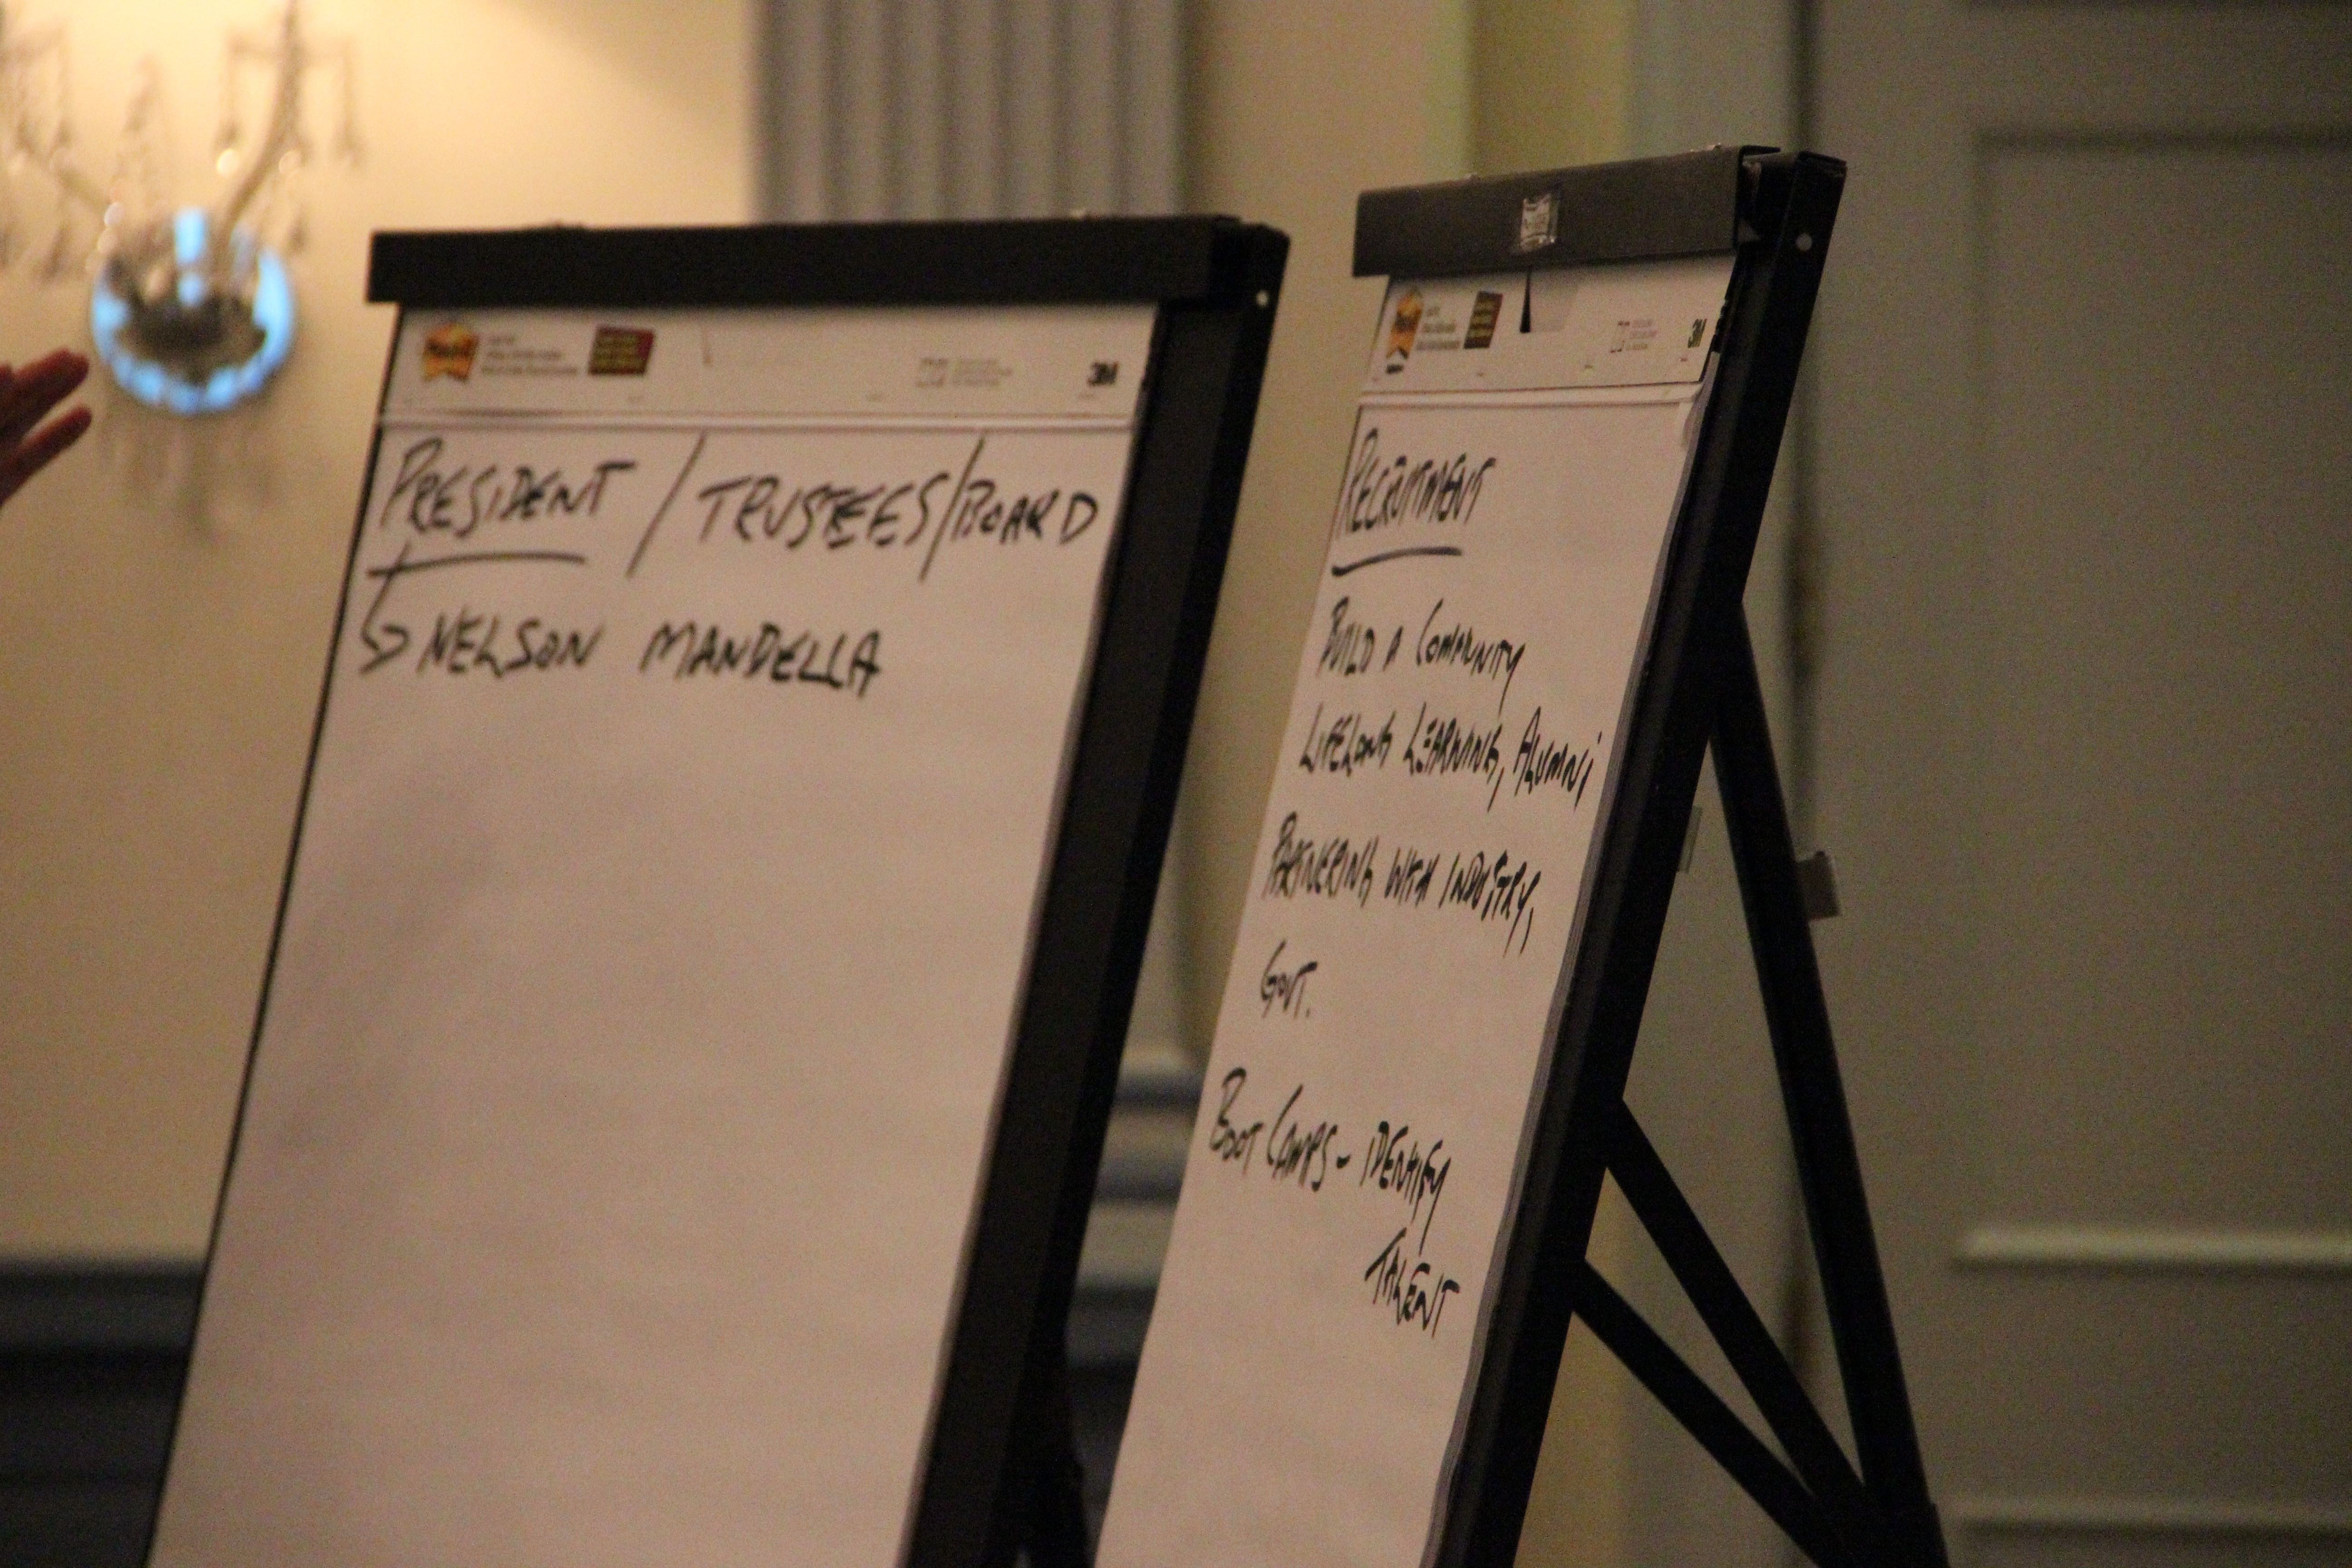 3M
PRESIDENT / TRUSTEES/BOARD
NELSON MANDELLA
3M
RECRUITMENT
BUILD A COMMUNITY
LIFELONG LEARNING, ALUMNI
PARTNERING WITH INDUSTRY,
GOVT.
BOOT CAMPS - IDENTIFY
TALENT